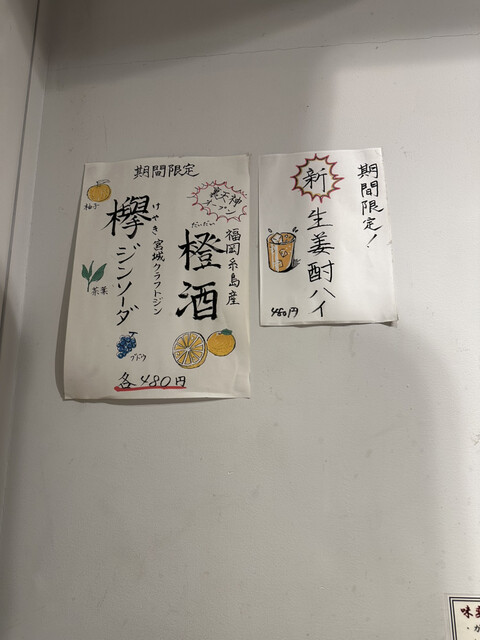 期間限定
裏天神
オープン
福岡糸島産
だいだい
橙酒
宮城クラフトジン
けやき
欅ジンソーダ
柚子
茶葉
ブドウ
各480円
期間限定!
新
生姜酎ハイ
480円